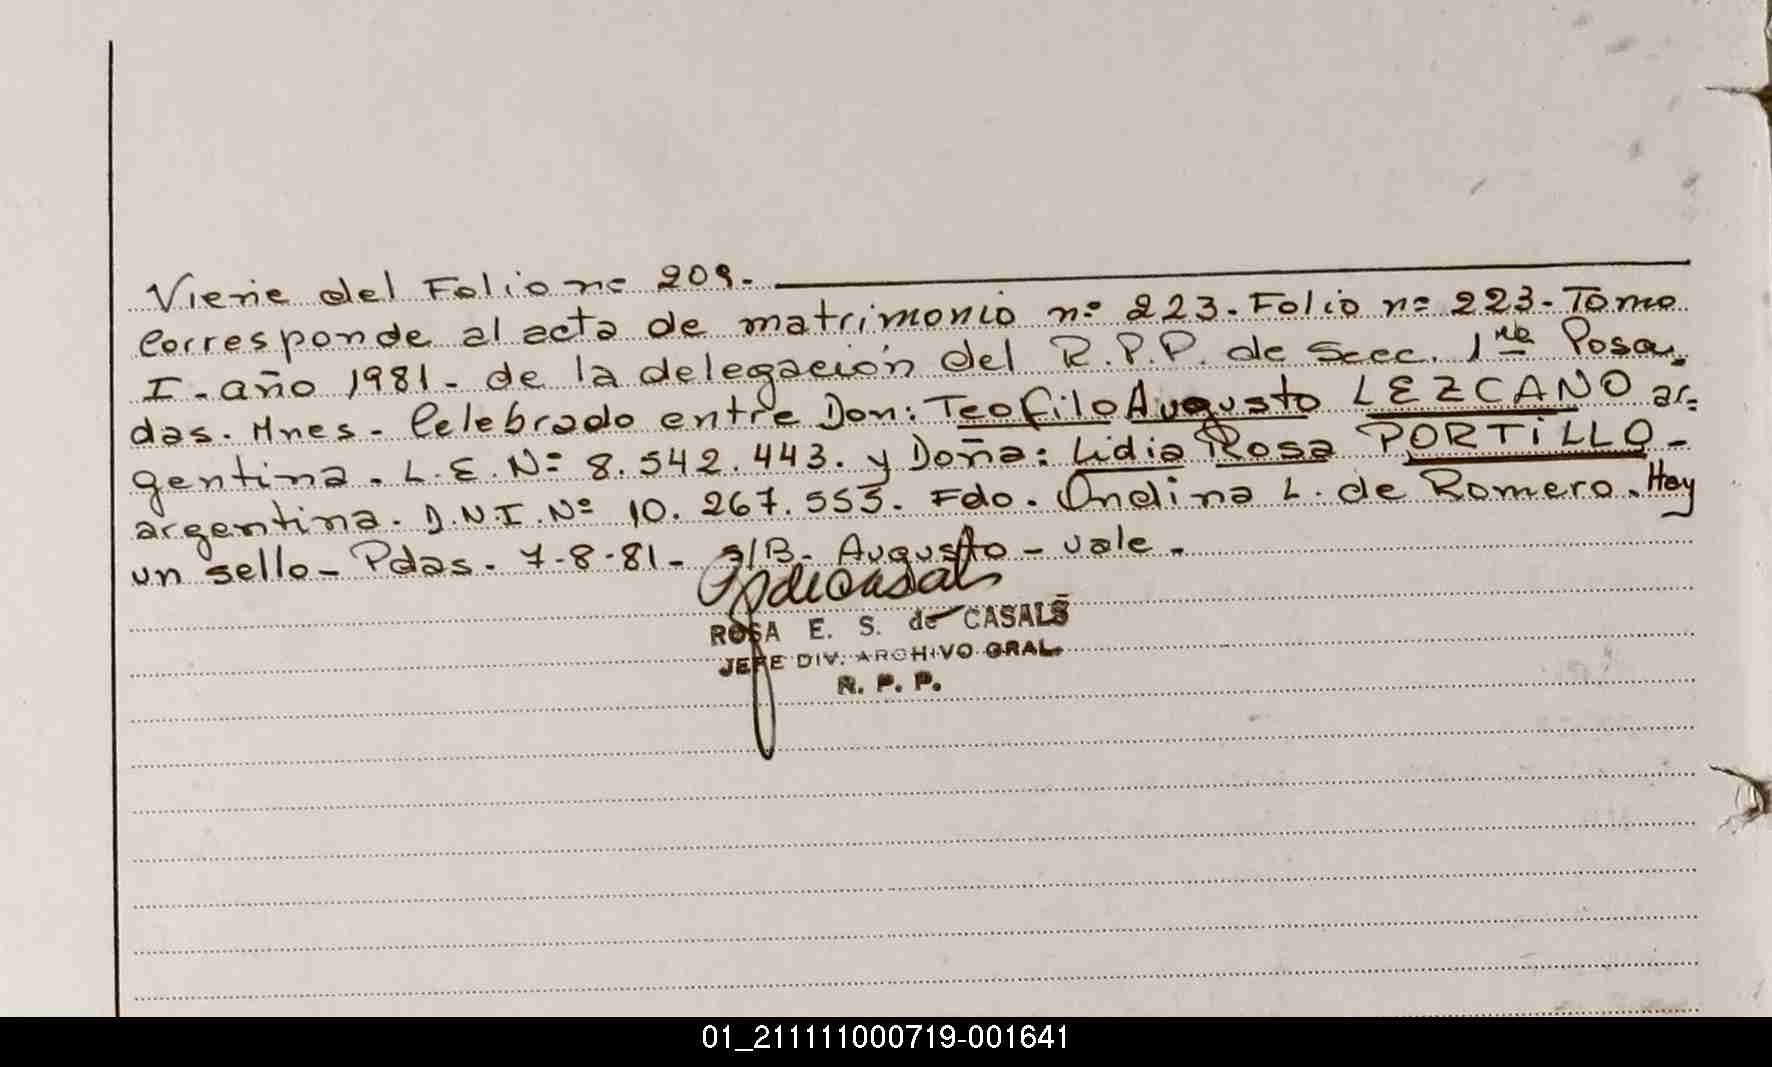 Viene del Folio nº 209.
Corresponde al acta de matrimonio nº 223. Folio nº 223 - Tomo
I - año 1981 - de la delegación del R.P.P. de Secc. 1ra Posa-
das. Mnes - Celebrado entre Don: Teofilo Augusto LEZCANO ar-
gentina. L.E. Nº 8.542.443. y Doña: Lidia Rosa PORTILLO -
argentina. D.N.I. Nº 10.267.553. Fdo. Ondina L. de Romero. Hay
un sello - Pdas. 7-8-81 - s/B. Augusto - vale.
ROSA E. S. de CASALS
JEFE DIV. ARCHIVO GRAL.
R. P. P.
01_211111000719-001641